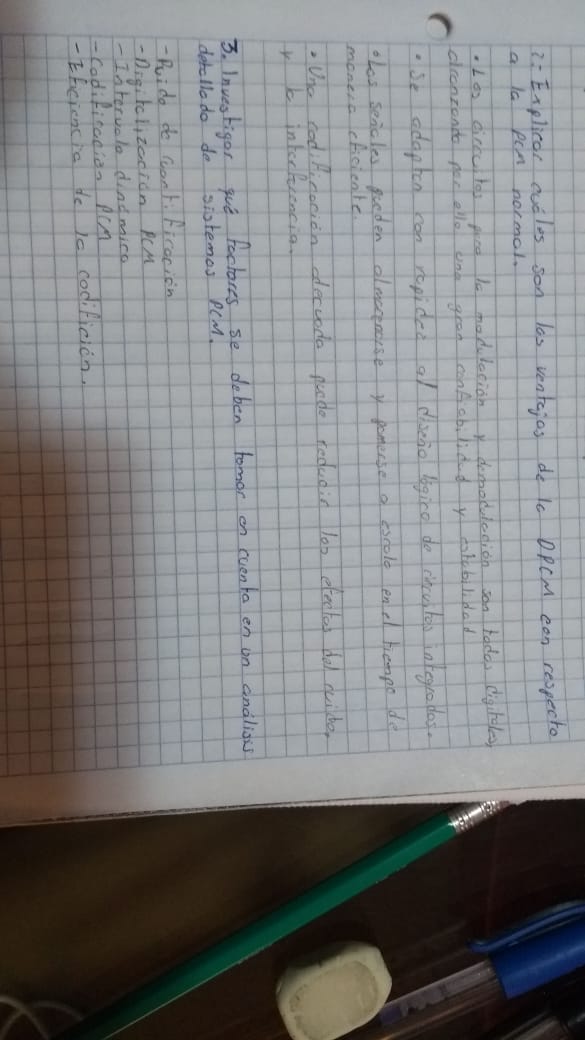 2.- Explicar cuáles son las ventajas de la DPCM con respecto
a la PCM normal.
• Los circuitos para la modulación y demodulación son todos digitales,
alcanzando por ello una gran confiabilidad y estabilidad
• Se adaptan con rapidez al diseño lógico de circuitos integrados.
• Las señales pueden almacenarse y ponerse a escala en el tiempo de
manera eficiente.
• Una codificación adecuada puede reducir los efectos del ruido,
y la interferencia.
3. Investigar qué factores se deben tomar en cuenta en un análisis
detallado de sistemas PCM.
- Ruido de cuantificación
- Digitalización PCM
- Intervalo dinámico
- Codificación PCM
- Eficiencia de la codificición.